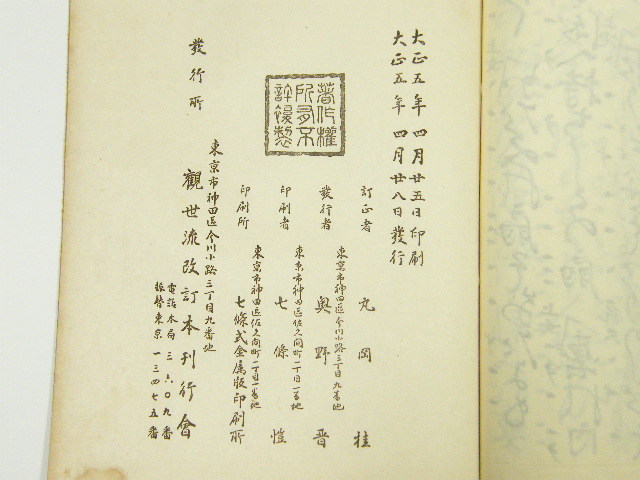 大正五年四月廿五日印刷
大正五年四月廿八日發行
著作權
所有不
許複製
訂正者 丸岡桂
東京市神田區今川小路三丁目九番地
發行者 奧野晋
東京市神田區佐久間町一丁目一番地
印刷者 七條愷
東京市神田區佐久間町一丁目一番地
印刷所 七條式金属版印刷所
東京市神田區今川小路三丁目九番地
發行所 觀世流改訂本刊行會
電話本局三六〇九番
振替東京一三四七五番